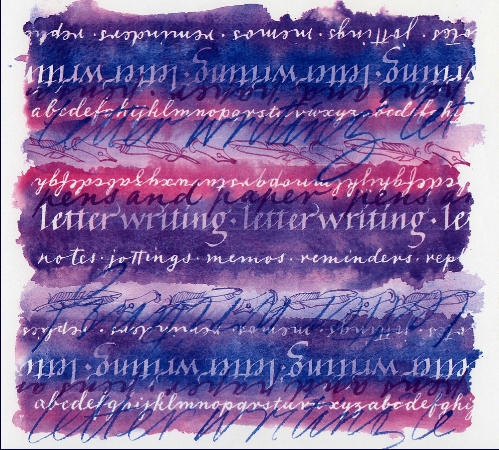 notes · jottings · memos · reminders · replies
letter writing · letter writing
pens and paper
abcdefghijklmnopqrstuvwxyz abcdefghij
letter writing
abcdefghijklmnopqrstuvwxyz abcdefghijkl
pens and paper · pens an
letter writing · letter writing · le
notes · jottings · memos · reminders · rep
notes · jottings · memos · reminders · replies
letter writing · letter writing
pens and
abcdefghijklmnopqrstuvwxyzabcdefghij
letter writing le